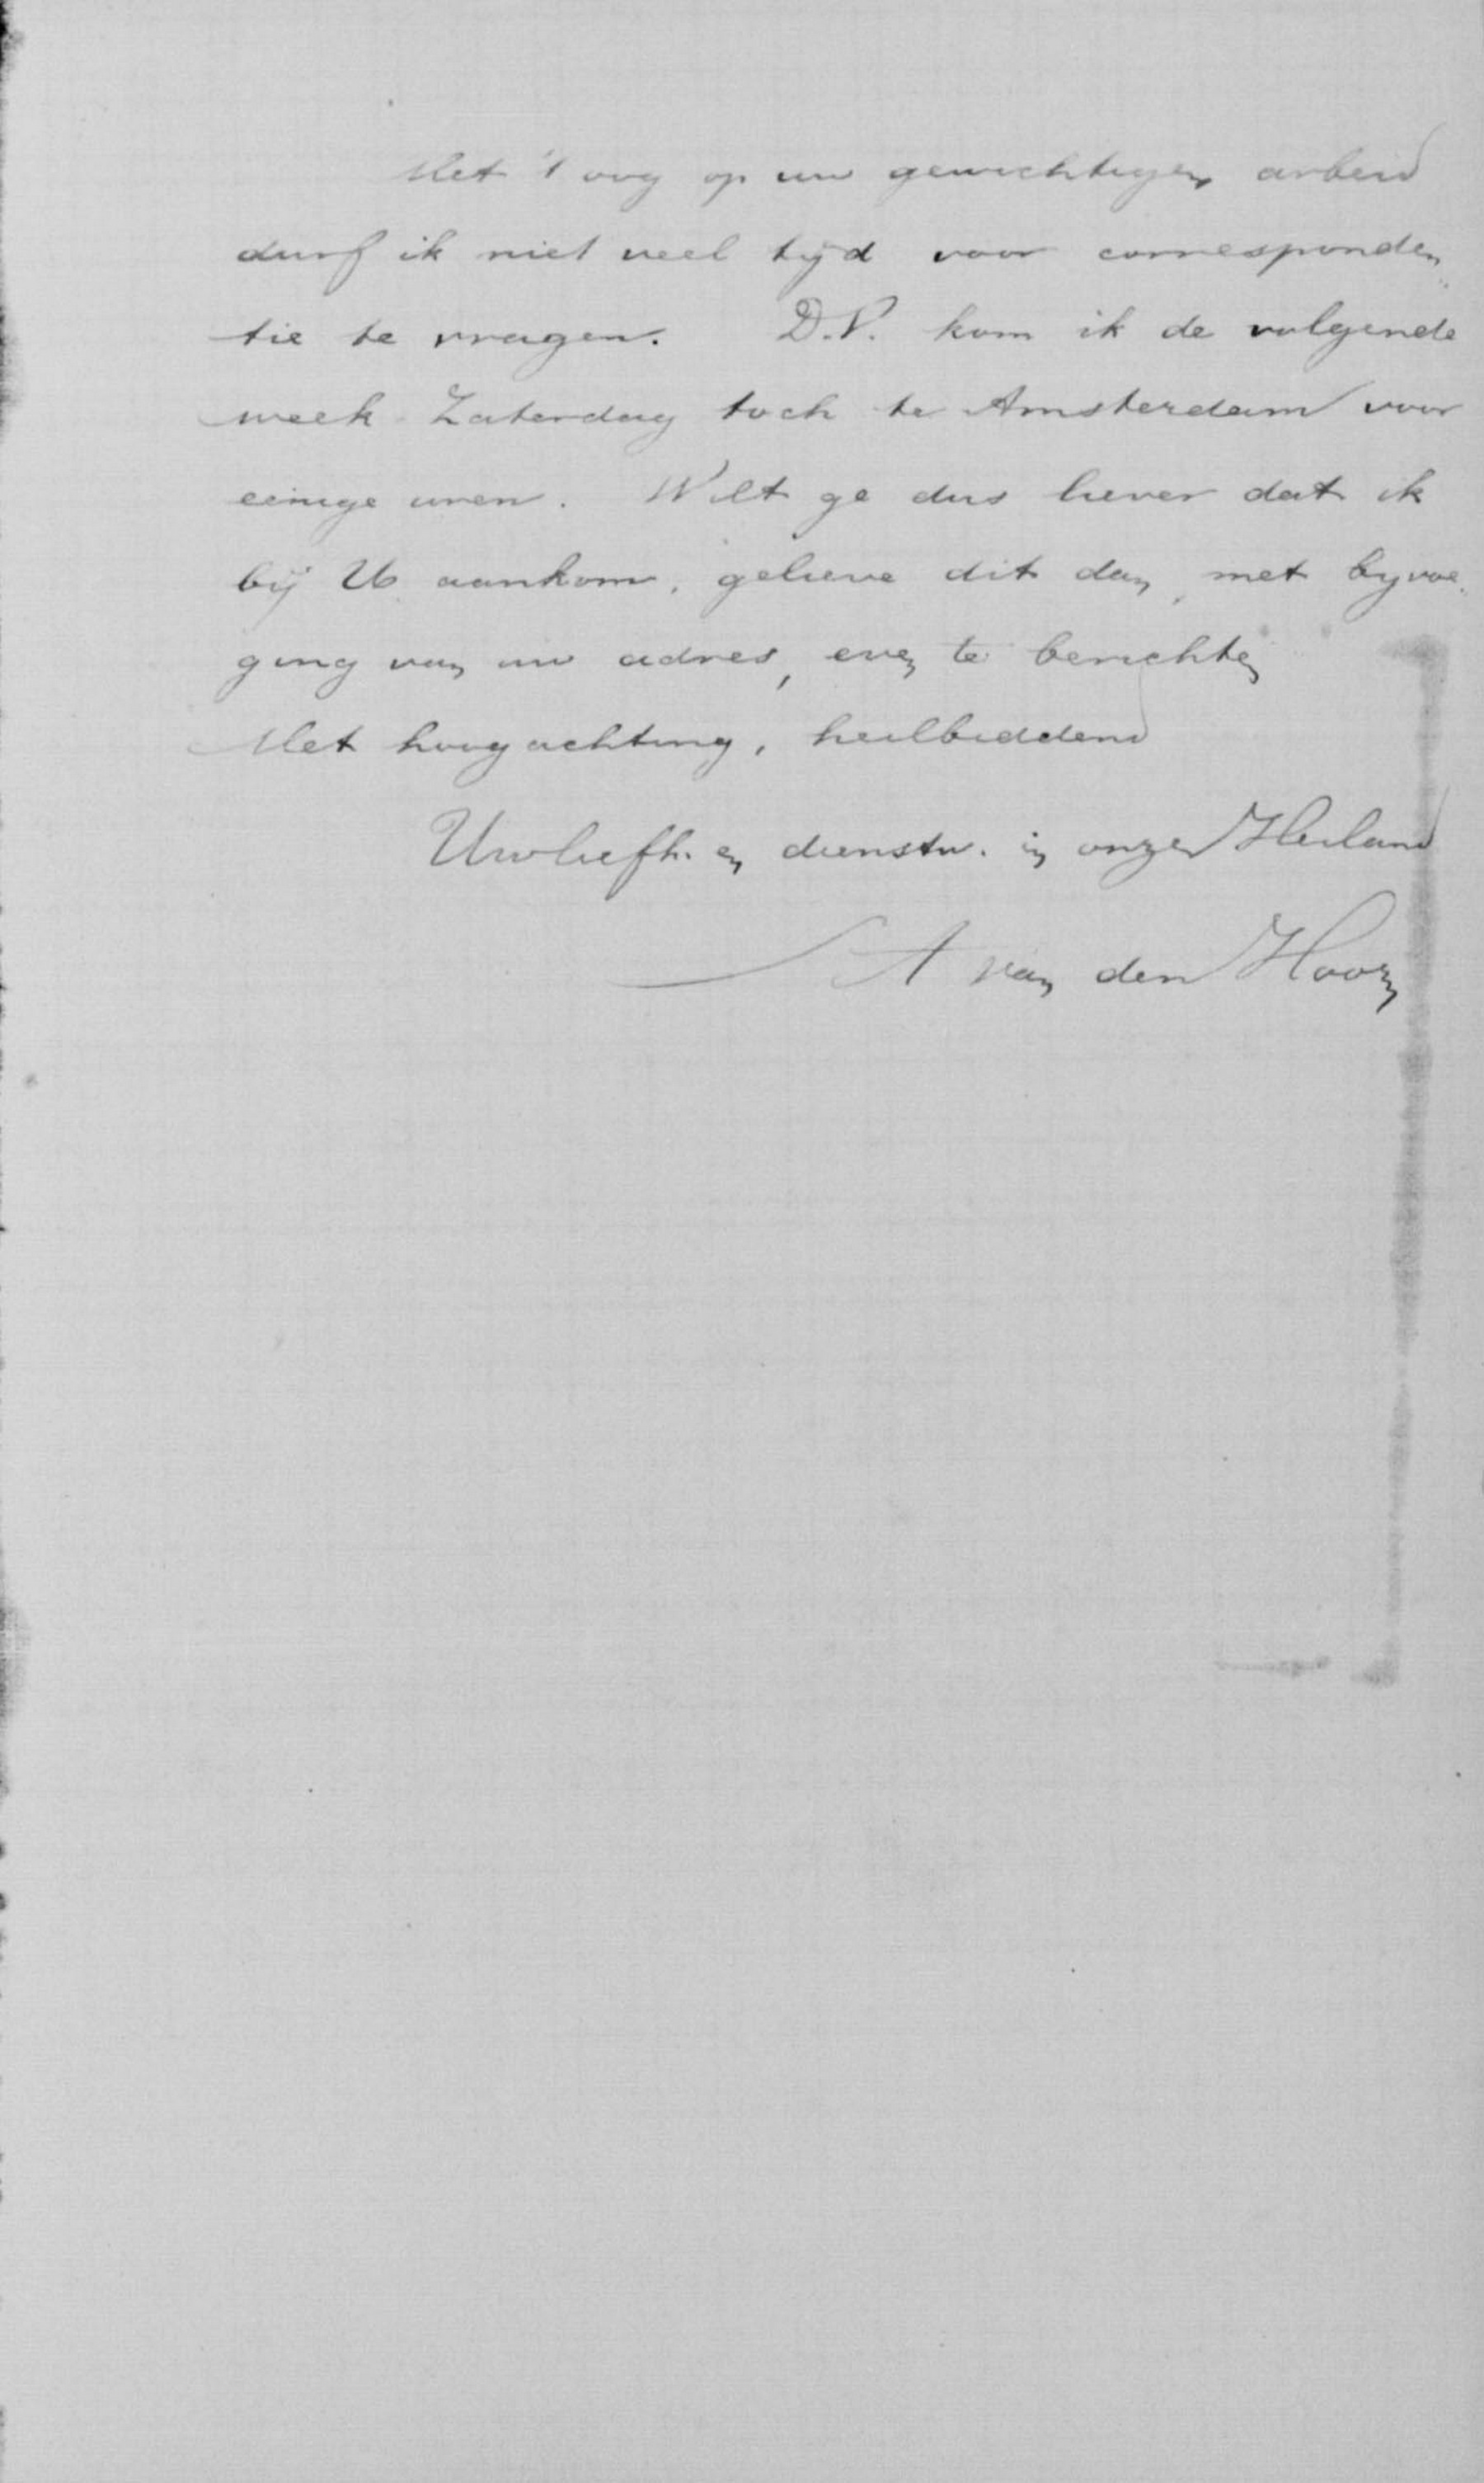 Met 't oog op uw gewichtigen arbeid
durf ik niet veel tijd voor corresponden,,
tie te vragen. D.V. kom ik de volgende
week Zaterdag toch te Amsterdam voor
eenige uren. Wilt ge dus liever dat ik
bij U aankom, gelieve dit dan, met byvoe,,
ging van uw adres, even te berichten
Met hoogachting, heilbiddend
Uw liefh. en dienstw. in onzen Heiland
A van den Hoorn